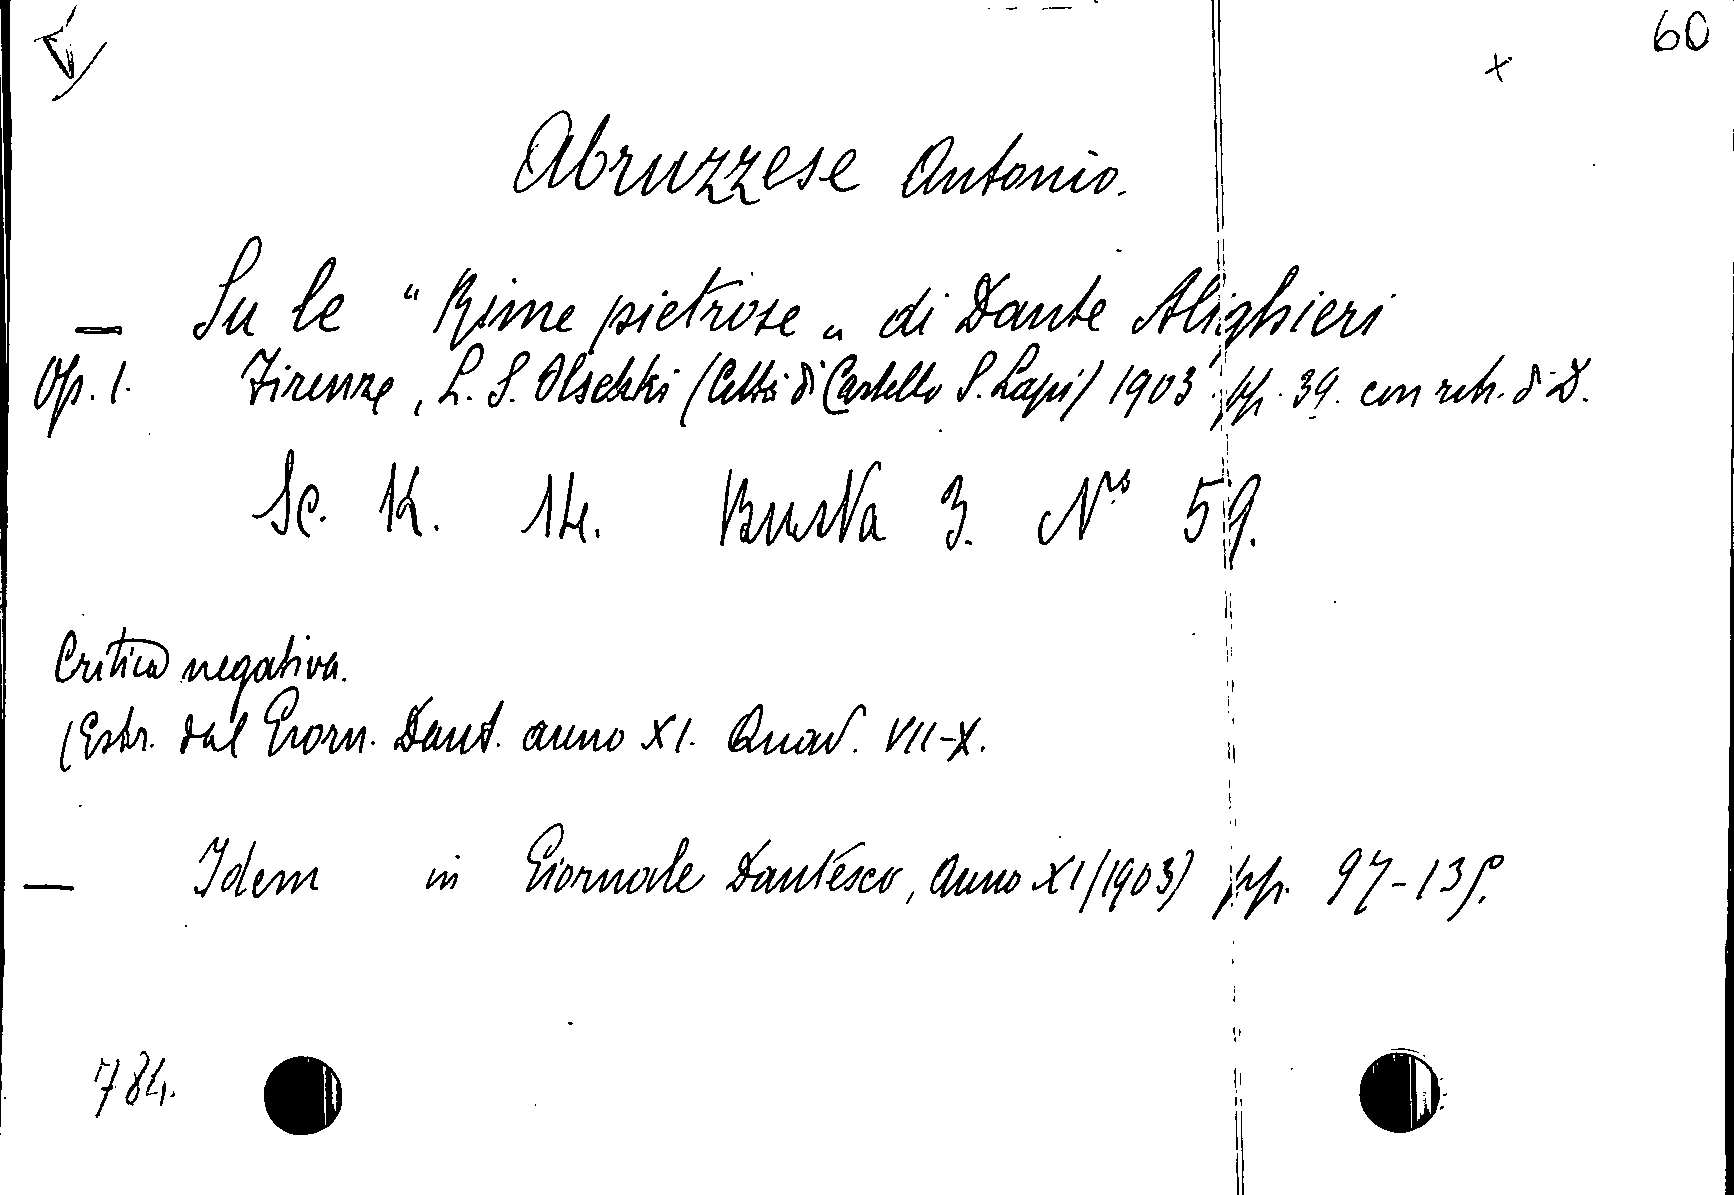 60
x
Abruzzese Antonio.
— Su le "Rime pietrose„ di Dante Alighieri
Op. 1. Firenze, L. S. Olschki (Città di Castello S. Lapi) 1903. pp. 39. con ritr. di D.
Sc. K. 14. Busta 3. N.º 59.
Critica negativa.
(Estr. dal Giorn. Dant. anno XI. Quad. VII-X.
— Idem in Giornale Dantesco, Anno XI (1903) pp. 97-135.
784.